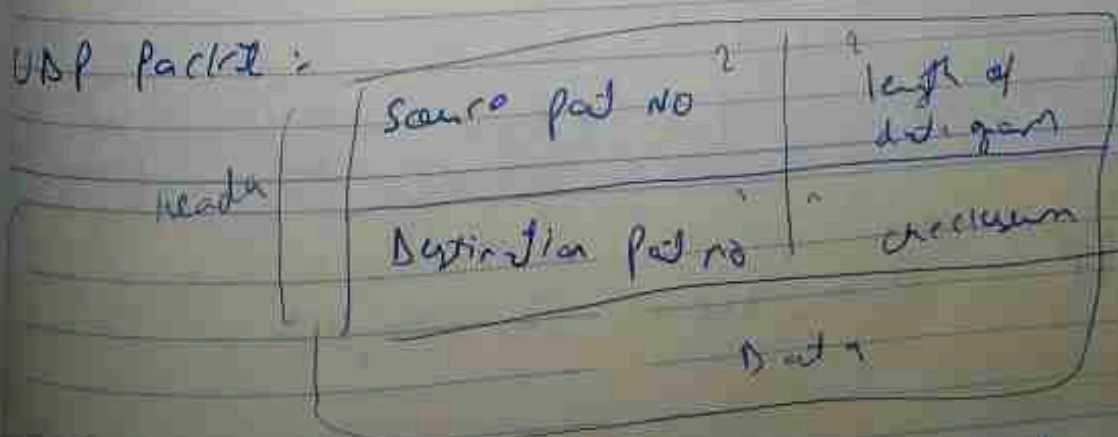 UDP Packet :-
Source port NO 2
2 length of
datagram
Header
Destination Port no
checksum
Data